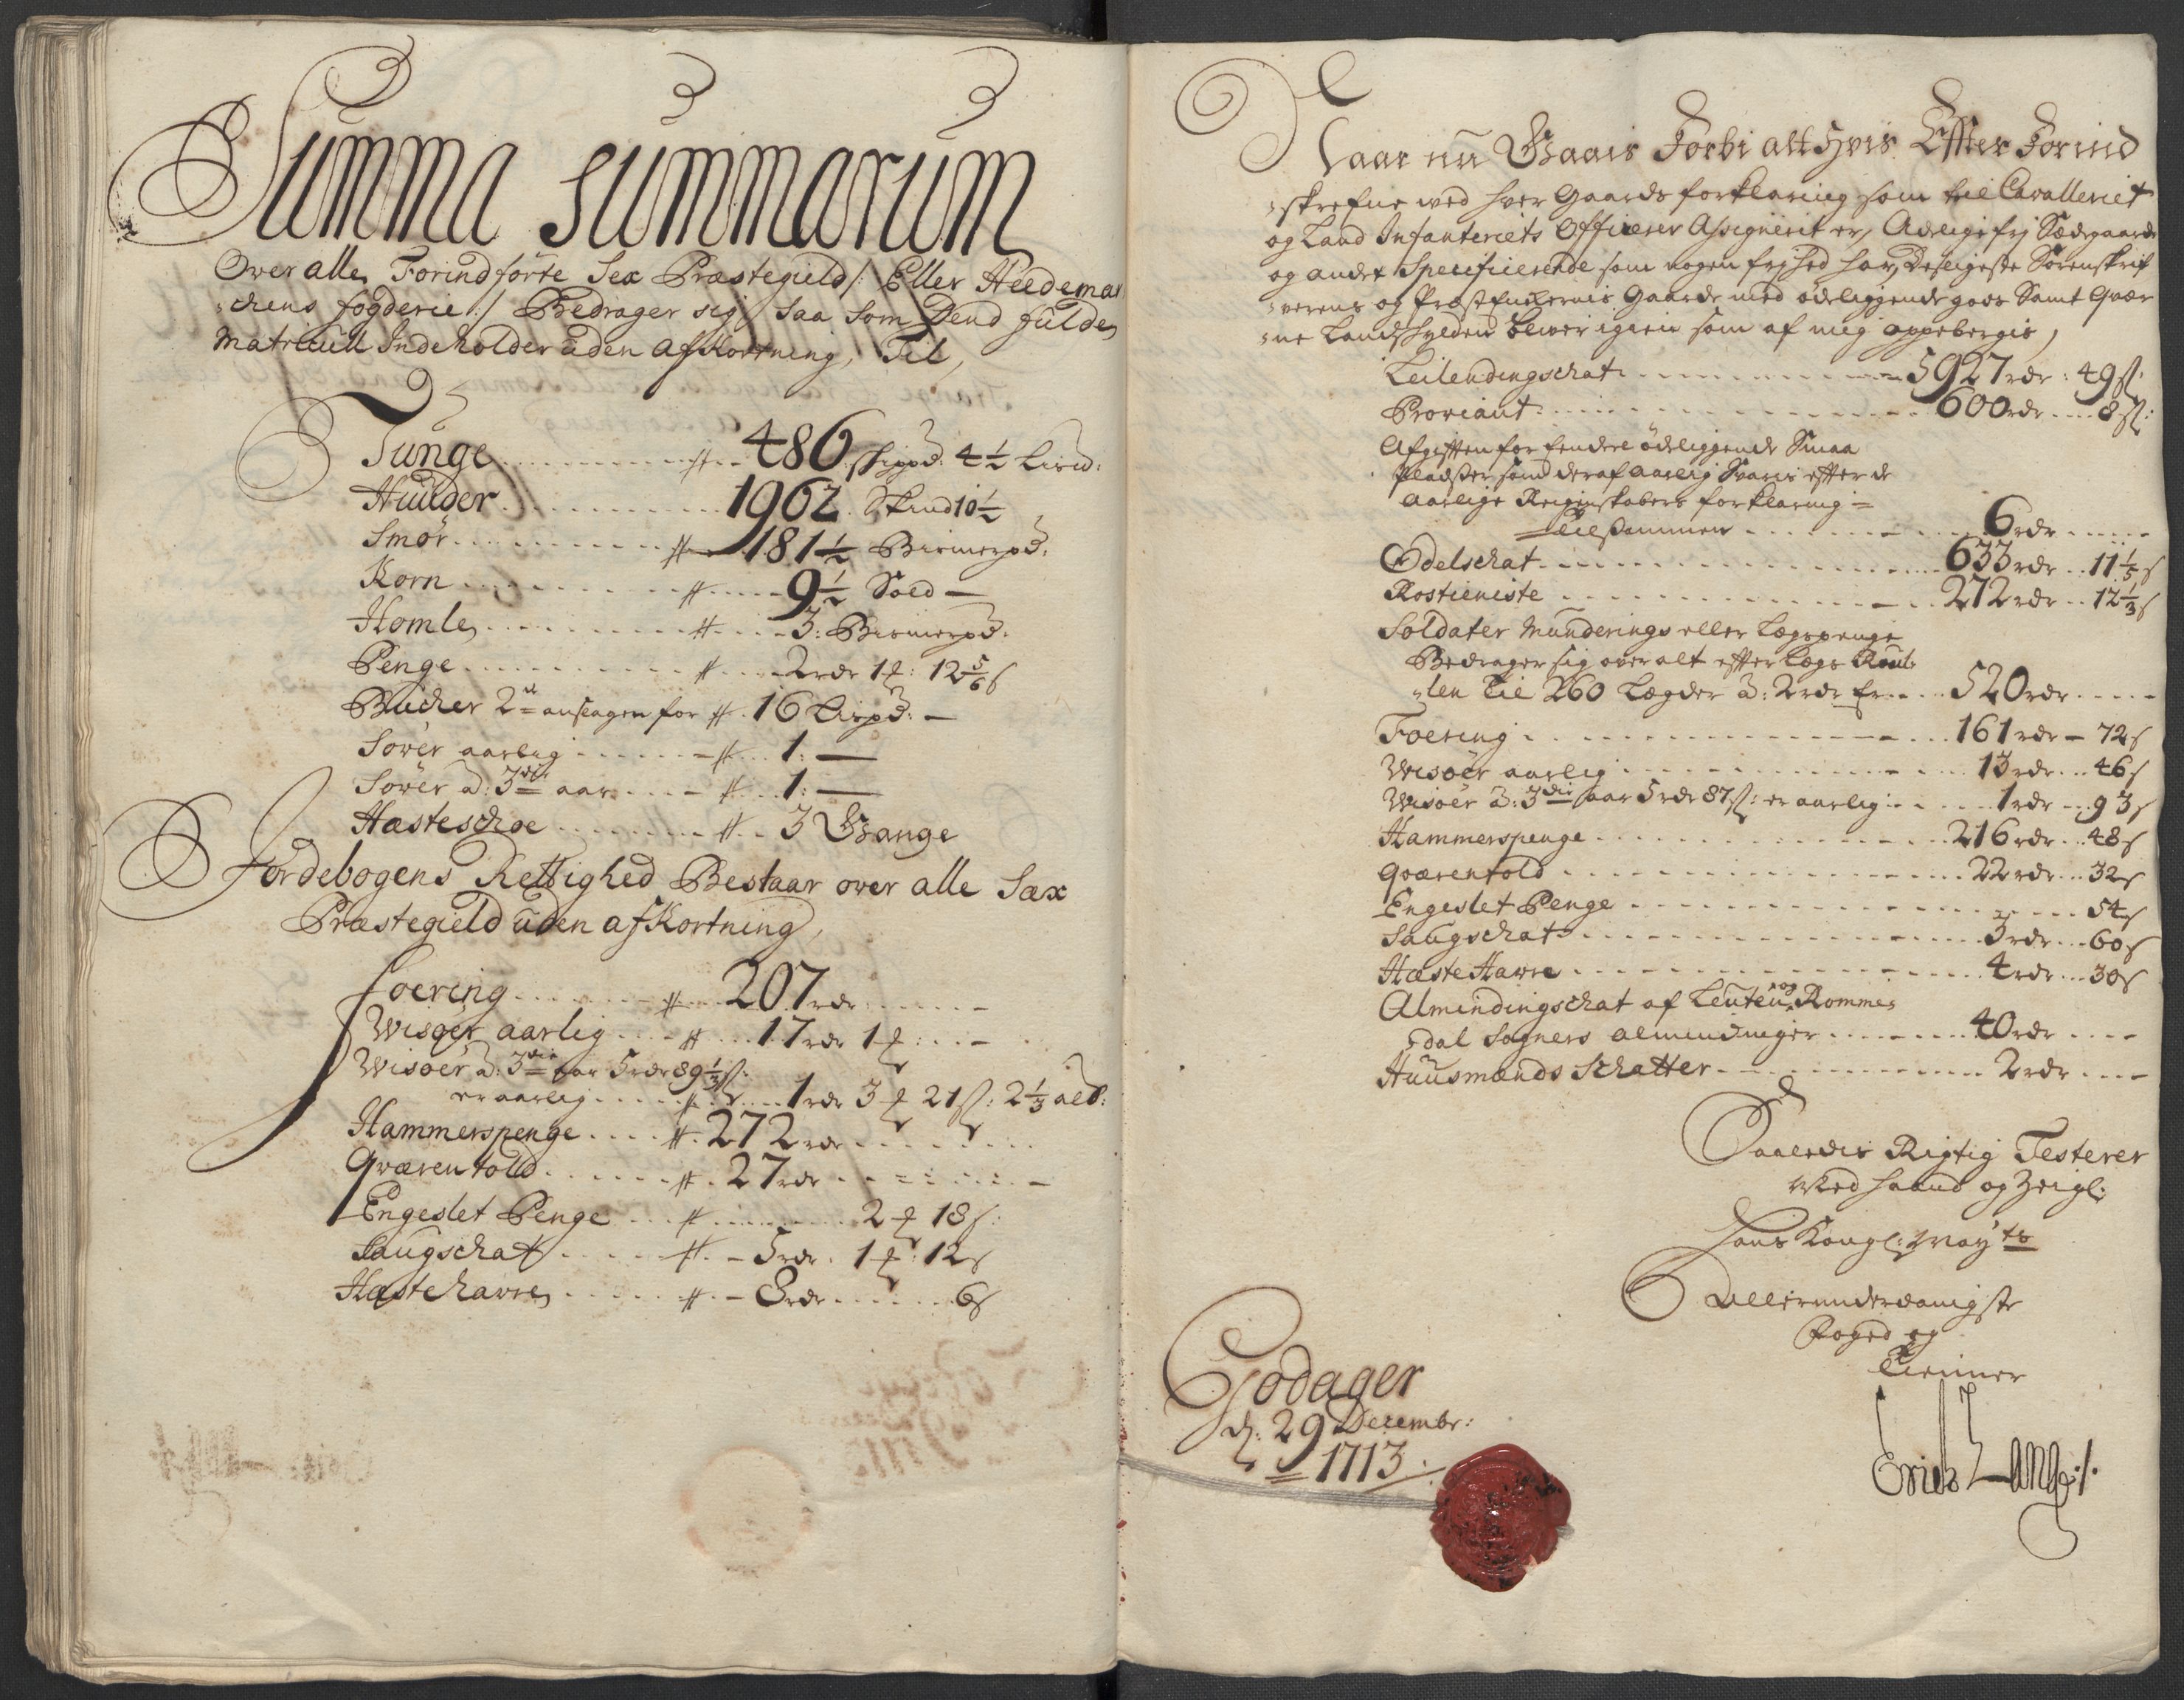 Summa Summarum
Over alle Forindförte Sex Præstegield /: Eller Heedemar
-chens fogderie :/ Bedrager sig saa som Dend fulde
Matricull Indeholder uden afKortning, Til,
Tunge 486 Skippd: 4½ Lispd:
Huuder 1962 Skind 10½
Smör 181½ Bismerpd:
Korn 9½ Sold
Homle 3: Bismerpd:
Penge 2 rdr 1 ort: 12 5/6 s
Bucker 2de anslagen for 16 Lispd:
Sover aarlig 1:
Sover a: 3die aar 1:
Hæsteschoe 3 Gange
Jordebogens Rettighed Bestaar over alle Sæx
Præstegield uden afKortning,
Foering 207 rdr
Wisöer aarlig 17 rdr 1 ort:
Wisöer a: 3die aar 5 rdr 89⅓ s:
er aarlig 1 rdr 3 ort 21 s: 2⅓ alb:
Hammerspenge 272 rdr
Qværentold 27 rdr
Engeslet Penge 2 ort 18 s:
Saugschat 5 rdr. 1 ort: 12 s
Hæstehavre 8 rdr 6 s
Naar nu Gaais Forbi alt Hvis Effter Forind
-skrefne ved hver Gaards forklaring som til Cavalleriet
og Land Infanteriets Officerer Assignerit er, Adelige frj Sædegaarde
og andre Specificerende som nogen frjhed har, Desligeste Sorenskrif
-verens og Præste Gaarde med ödeliggende gods Samt Qvær
-ne Landskylden bliver igien som af mig oppebergis,
Leilendingschat 5927 rdr: 49 s:
Proviant 600 rdr 8 s:
Afgifften for ödeliggende Smaa
Pladtzer som deraf aarlig Svaris effter de
aarlige Reignskabers forklaring
Tilsammen 6 rdr
Odelschat 633 rdr 11⅕ s
Rostieniste 272 rdr 12⅓ s
Soldater Munderings eller Lægspenge
Bedrager sig over alt effter Lægs Roul-
-len til 260 Lægder a: 2 rdr Er 520 rdr
Foering 161 rdr 72 s
Wisöer aarlig 13 rdr 46 s
Wisöer a: 3die aar 5 rdr 87 s: er aarlig 1 rdr 93 s
Hammerspenge 216 rdr 48 s
Qværentold 22 rdr 32 s
Engeslet Penge 54 s
Saugschat 3 rdr 60 s
Hæste Havre 4 rdr 30 s
Almindingschat af Leuten og Rommes
-dal Sogners alminninger 40 rdr
Huusmænds Schatter 2 rdr
Saaledis Rigtig Testerer
Med haand og Zeigl:
Hans Kongl: Mayts
Allerunderdanigste
Foged og
Tienner
Godager
d: 29 Decembr:
1713
Erich Lange